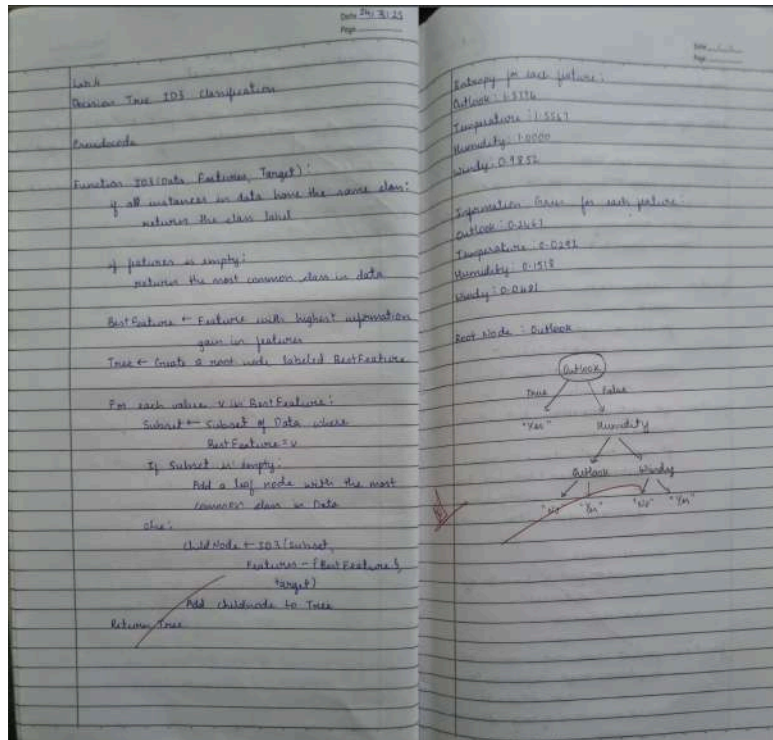 Date 24/3/25
Page
Lab 4
Decision Tree ID3 classification
Pseudocode
Function ID3(Data Features, Target):
if all instances in data have the same class:
return the class label
if features is empty:
return the most common class in data
Best Feature ← Feature with highest information
gain in features
Tree ← Create a root node labeled BestFeature
For each value v in BestFeature:
Subset ← Subset of Data where
BestFeature = v
If Subset is empty:
Add a leaf node with the most
common class in Data
else:
childNode ← ID3(Subset,
Features - {BestFeature},
target)
Add childnode to Tree
Return Tree
Date
Page
Entropy for each feature:
Outlook: 1.5774
Temperature: 1.5567
Humidity: 1.0000
Windy: 0.9852
Information Gain for each feature:
Outlook: 0.2467
Temperature: 0.0292
Humidity: 0.1518
Windy: 0.0481
Root Node: Outlook
Outlook
True False
"Yes" Humidity
Outlook Windy
"No" "Yes" "No" "Yes"